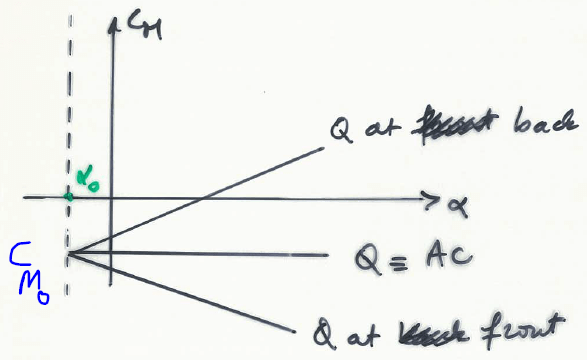 C_M
Q at back
α₀
α
C_M₀
Q ≡ AC
Q at front